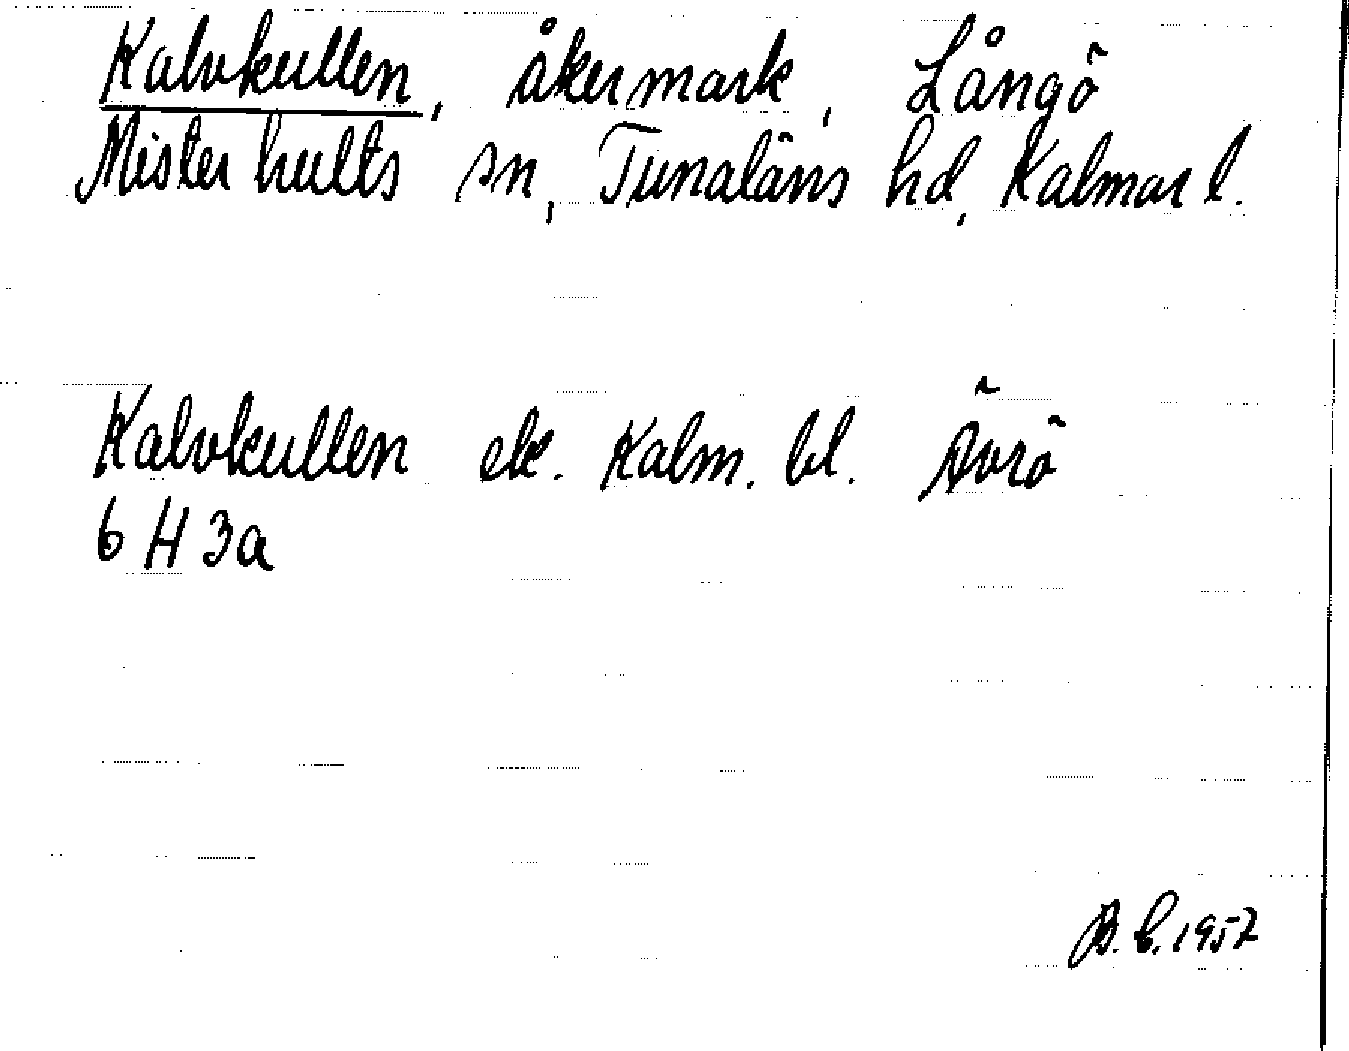 Kalvkullen, åkermark, Långö
Misterhults sn, Tunaläns hd, Kalmar l.
Kalvkullen ek. Kalm. bl. Ävrö
6 H 3a
B. L. 1957